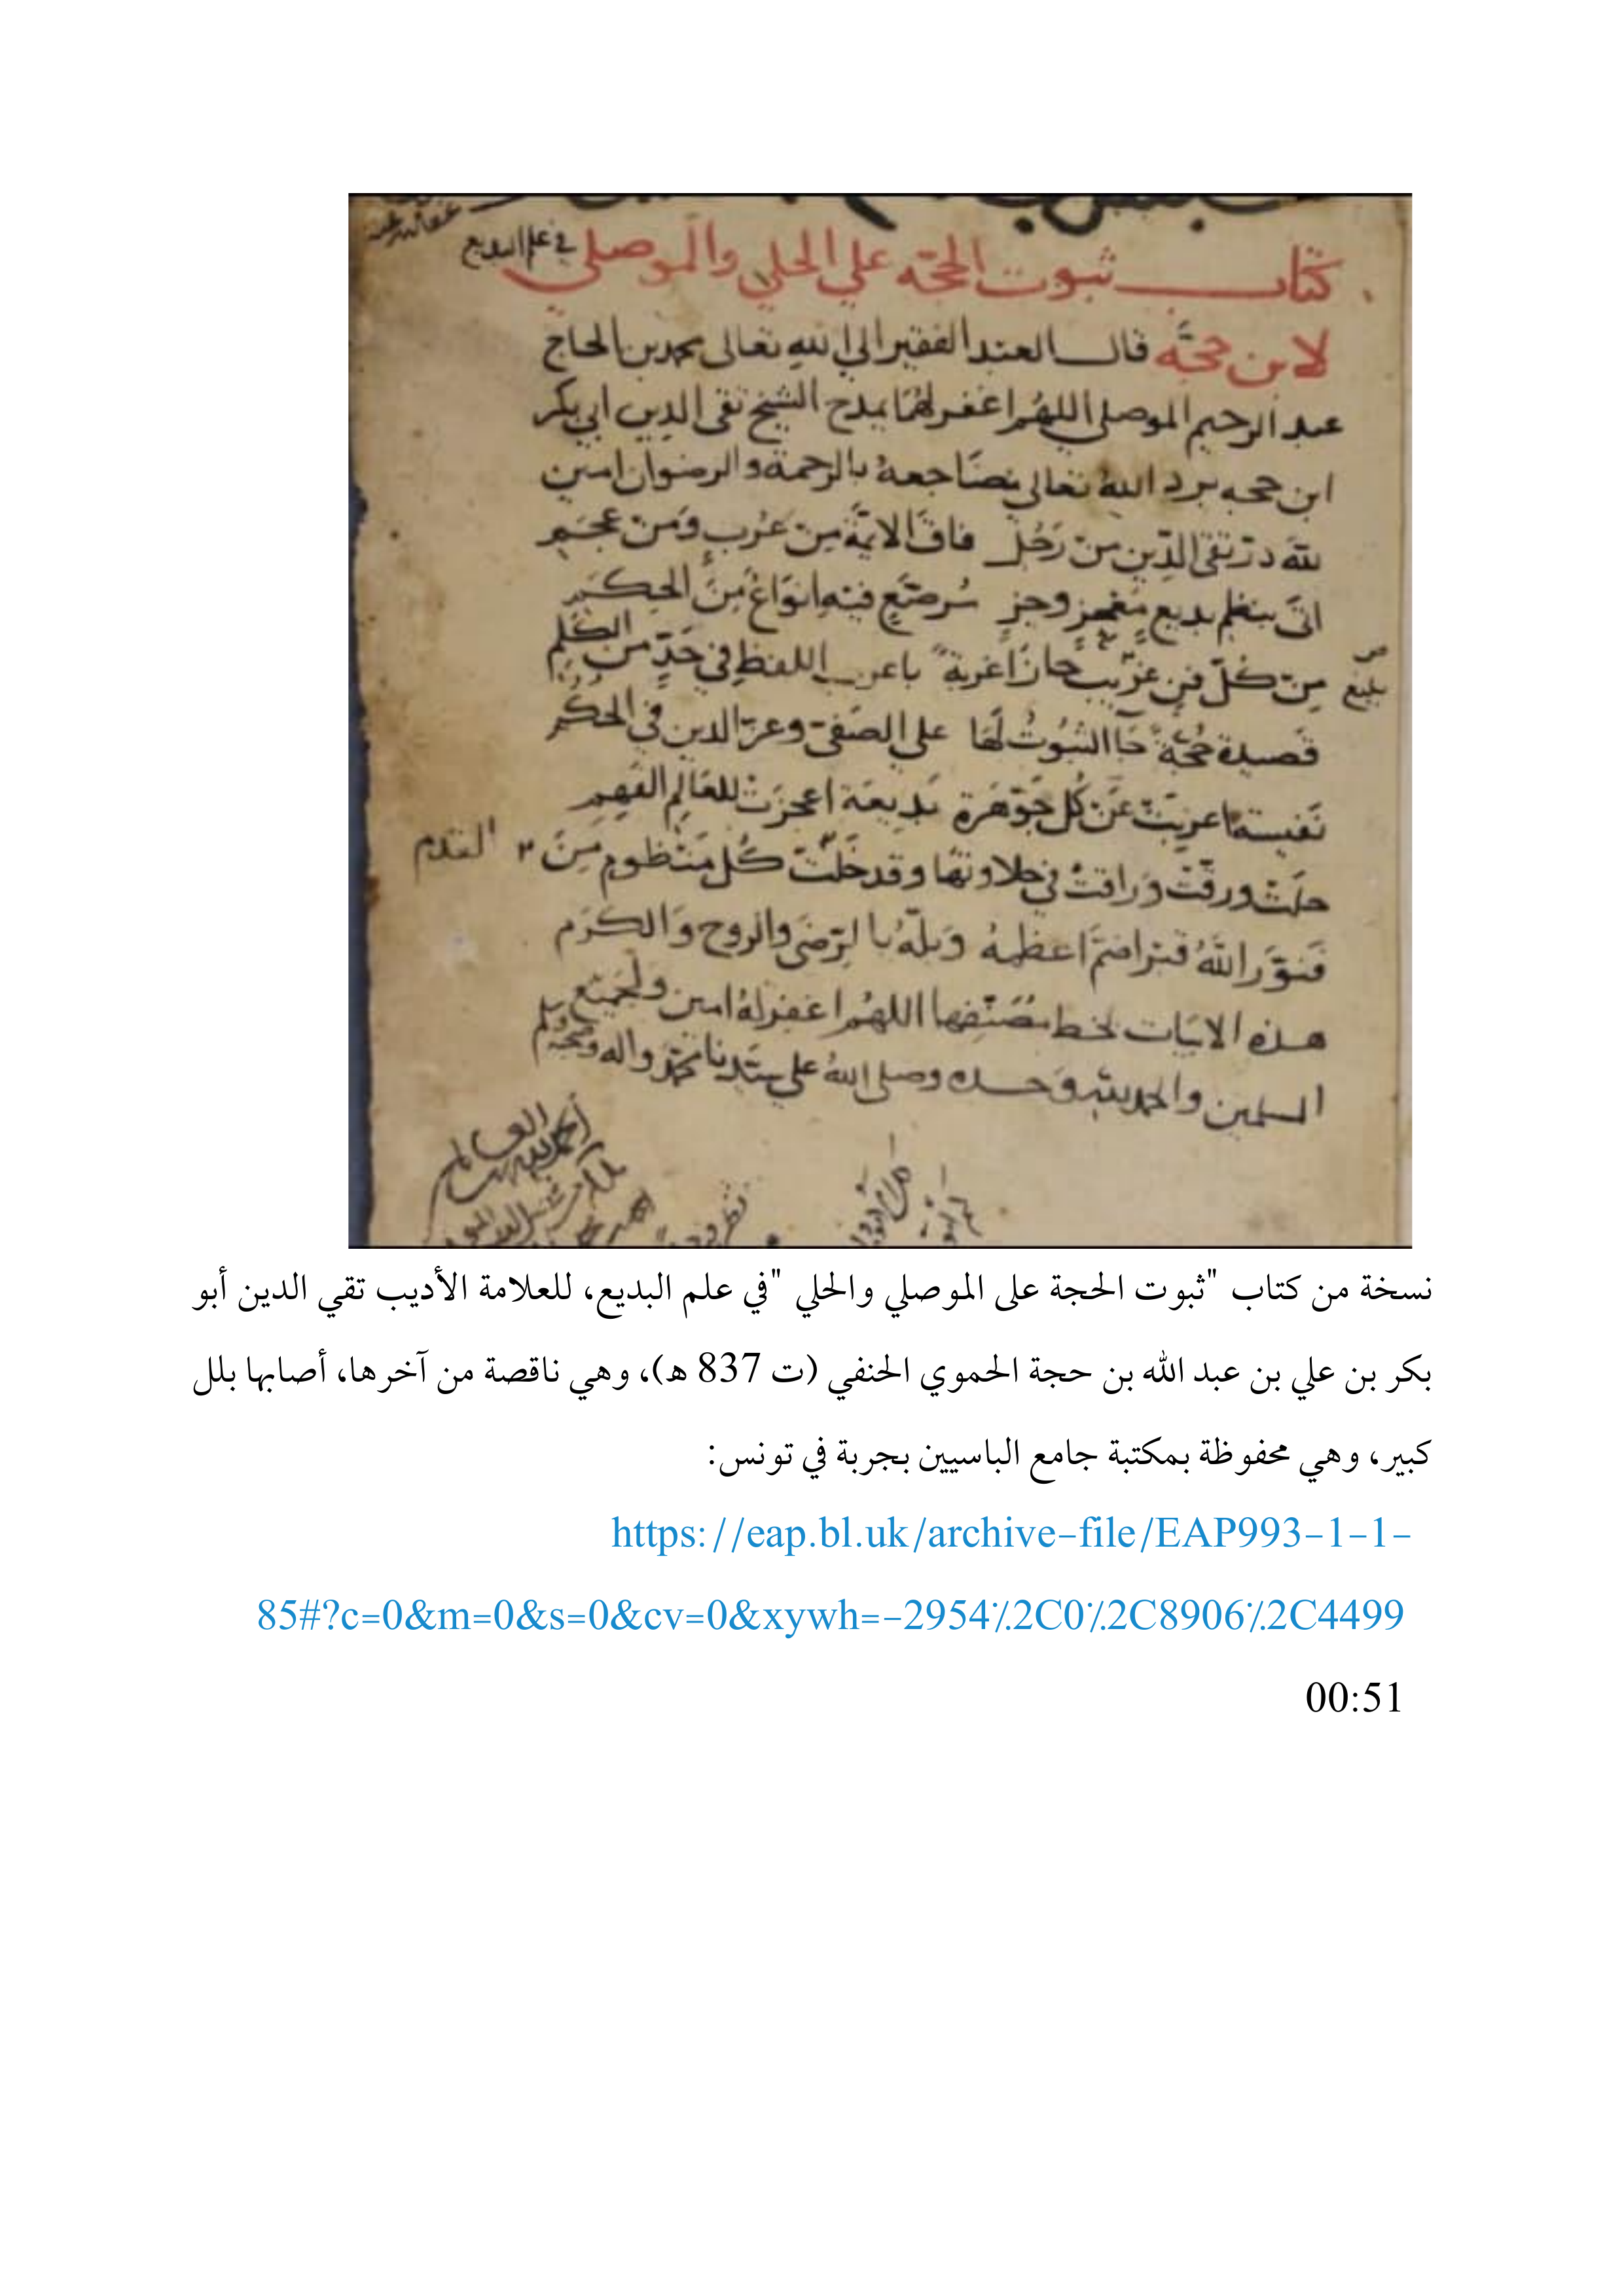 كتاب ثبوت الحجه علي الحلي والموصلي في علم البديع
لابن حجّه قال العبد الفقير الي الله تعالى محمد بن الحاج
عبد الرحيم الموصلي اللهم اغفر لهما يمدح الشيخ تقى الدين ابي بكر
ابن حجه برد الله تعالى مضاجعه بالرحمة والرضوان امين
لله در تقى الدين من رجل فاق الايمة من عرب ومن عجم
اتى بنظم بديع معجز وجز من الحكم
من كل فن غريب حاز اغربة اللفظ في من الكلم
بليغ
قصيدة حجة الثبوت لها على الصفى وعز الدين في الحكم
نفيسة عن كل جوهرة بديعة اعجزت للعالم الفهم
حلت ورقت وراقت في حلاوتها وقد خلت كل منظوم من القدم
فنور الله قبرا ضم اعظمه وبله بالرضى والروح والكرم
هذه الابيات بخط مصنفها اللهم اغفر له امين ولجميع
المسلمين والحمد لله وحده وصلى الله على سيدنا محمد واله وصحبه وسلم
نسخة من كتاب "ثبوت الحجة على الموصلي والحلي "في علم البديع، للعلامة الأديب تقي الدين أبو
بكر بن علي بن عبد الله بن حجة الحموي الحنفي (ت 837 ه)، وهي ناقصة من آخرها، أصابها بلل
كبير، وهي محفوظة بمكتبة جامع الباسيين بجربة في تونس:
https://eap.bl.uk/archive-file/EAP993-1-1-
85#?c=0&m=0&s=0&cv=0&xywh=-2954%2C0%2C8906%2C4499
00:51